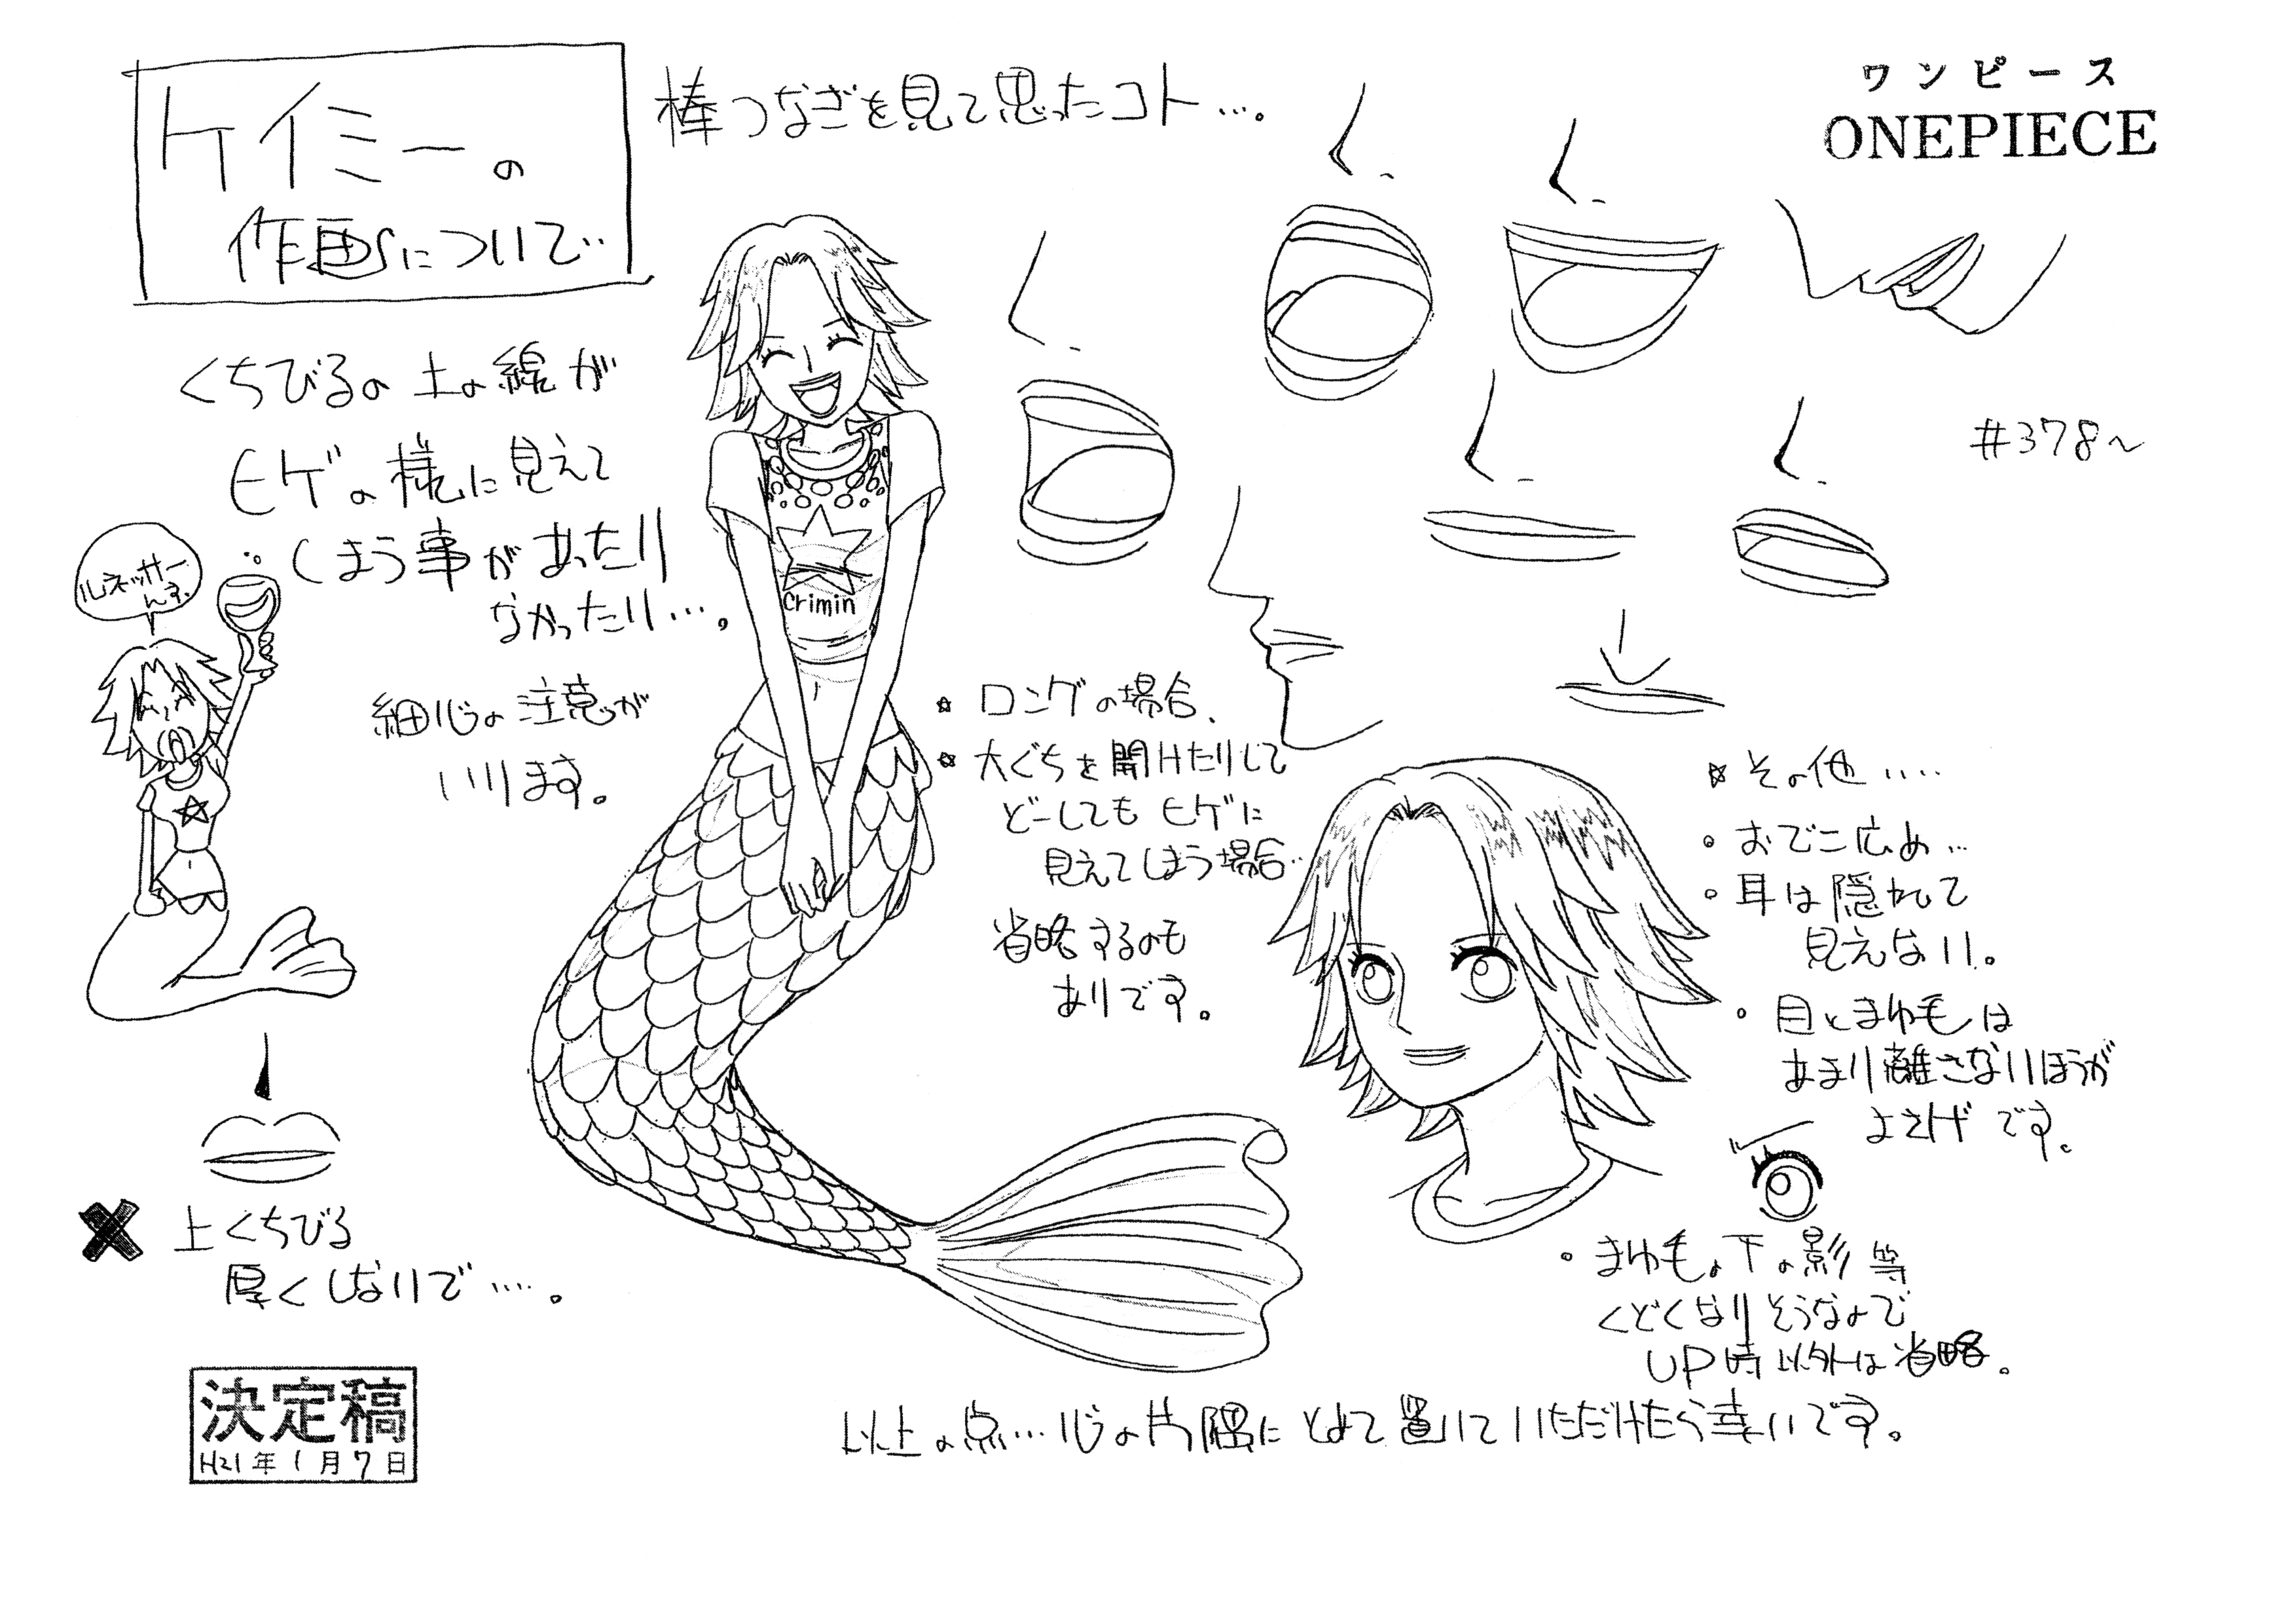 ケイミーの
作画について‥
棒つなぎを見て思ったコト…。
ワンピース
ONEPIECE
#378~
くちびるの上の線が
ヒゲの様に見えて
しまう事があったり
なかったり…。
細心の注意が
いります。
ルネッサー
んす。
Crimin
☆ ロングの場合、
☆ 大ぐちを開けたりして
どーしてもヒゲに
見えてしまう場合‥
省略するのも
ありです。
☆ その他‥‥
・おでこ広め…
・耳は隠れて
見えない。
・目とまゆ毛は
あまり離さないほうが
よさげです。
・まゆ毛の下の影等
くどくなりそうなので
UP時以外は省略。
✖ 上くちびる
厚くしないで‥‥。
決定稿
H21年1月7日
以上の点…心の片隅にとめて置いていただけたら幸いです。